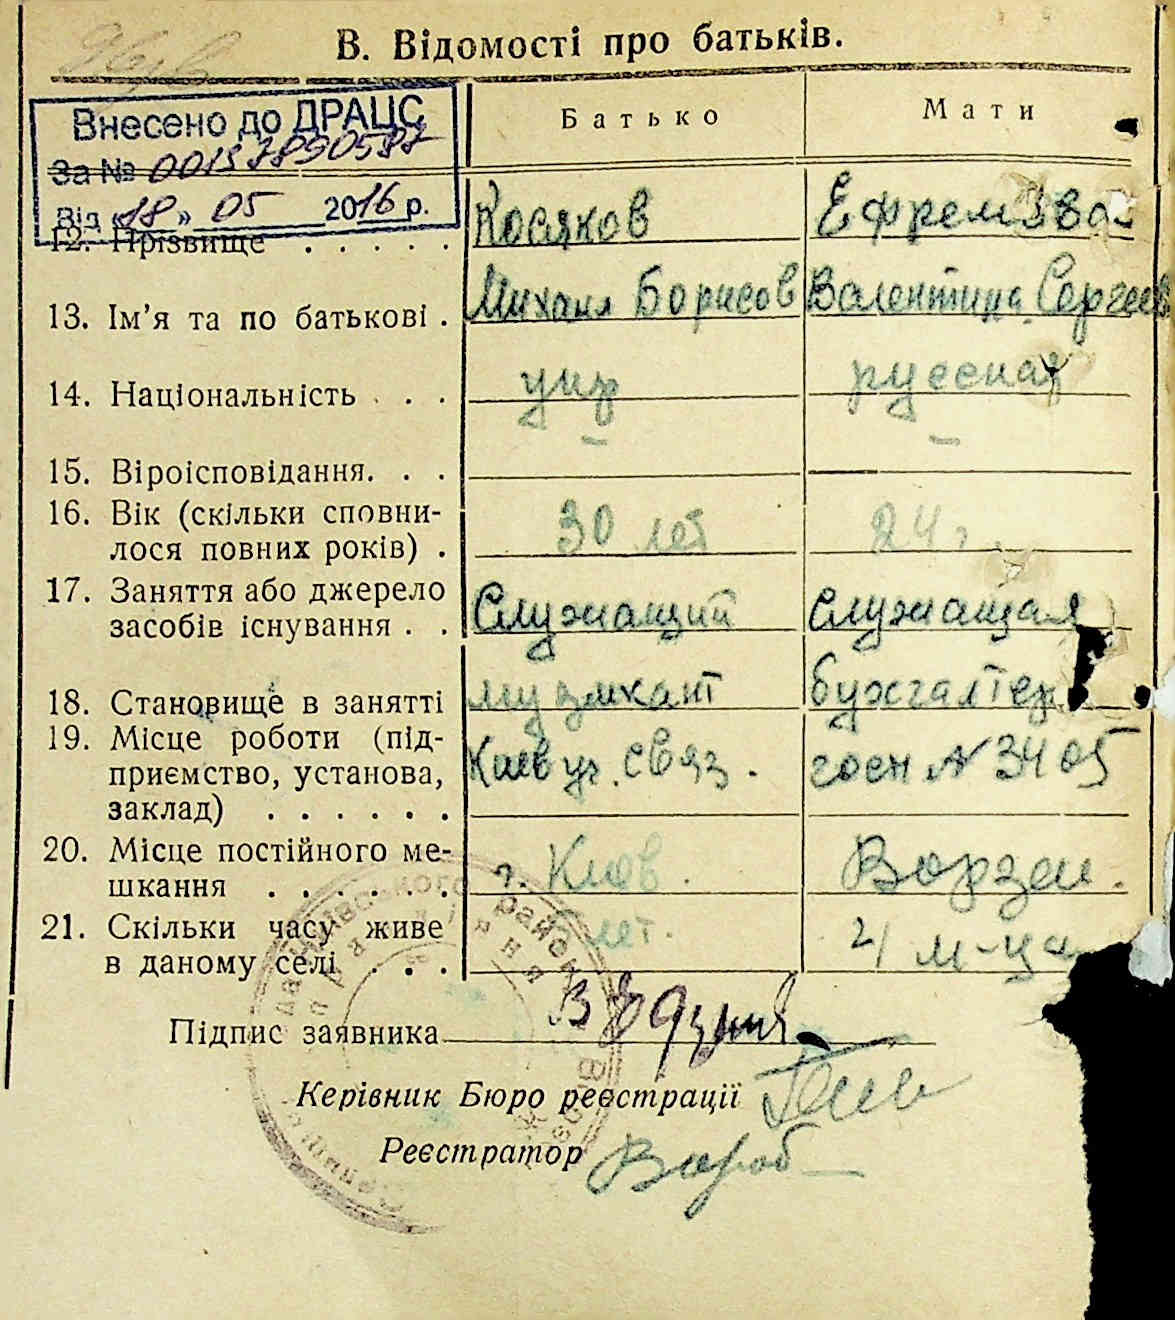 В. Відомості про батьків.
Внесено до ДРАЦС
За № 00137890587
Від «18» 05 2016 р.
Батько Мати
12. Прізвище . . . . . Косяков Ефремова
13. Ім’я та по батькові . Михаил Борисов Валентина Сергеев
14. Національність . . . укр русская
15. Віроісповідання. . . – –
16. Вік (скільки сповни-
лося повних років) . 30 лет 24 г.
17. Заняття або джерело
засобів існування . . Служащий служащая
18. Становище в занятті музикант бухгалтер
19. Місце роботи (під-
приємство, установа, Киев уч. связ. госп № 3405
заклад) . . . . . .
20. Місце постійного ме-
шкання . . . . . . г. Киев. Ворзель.
21. Скільки часу живе
в даному селі . . . лет. 4 м-ца
Підпис заявника
Керівник Бюро реєстрації
Реєстратор